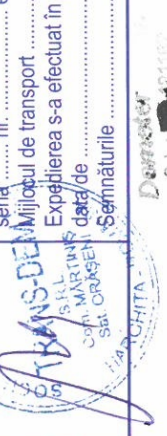 seria ........ nr. ..................
Mijlocul de transport ........
Expedierea s-a efectuat în
data de ..........................
Semnăturile
S TRANS-DEM
S.R.L.
Com. MĂRTINIȘ
Sat. ORĂȘENI
HARGHITA